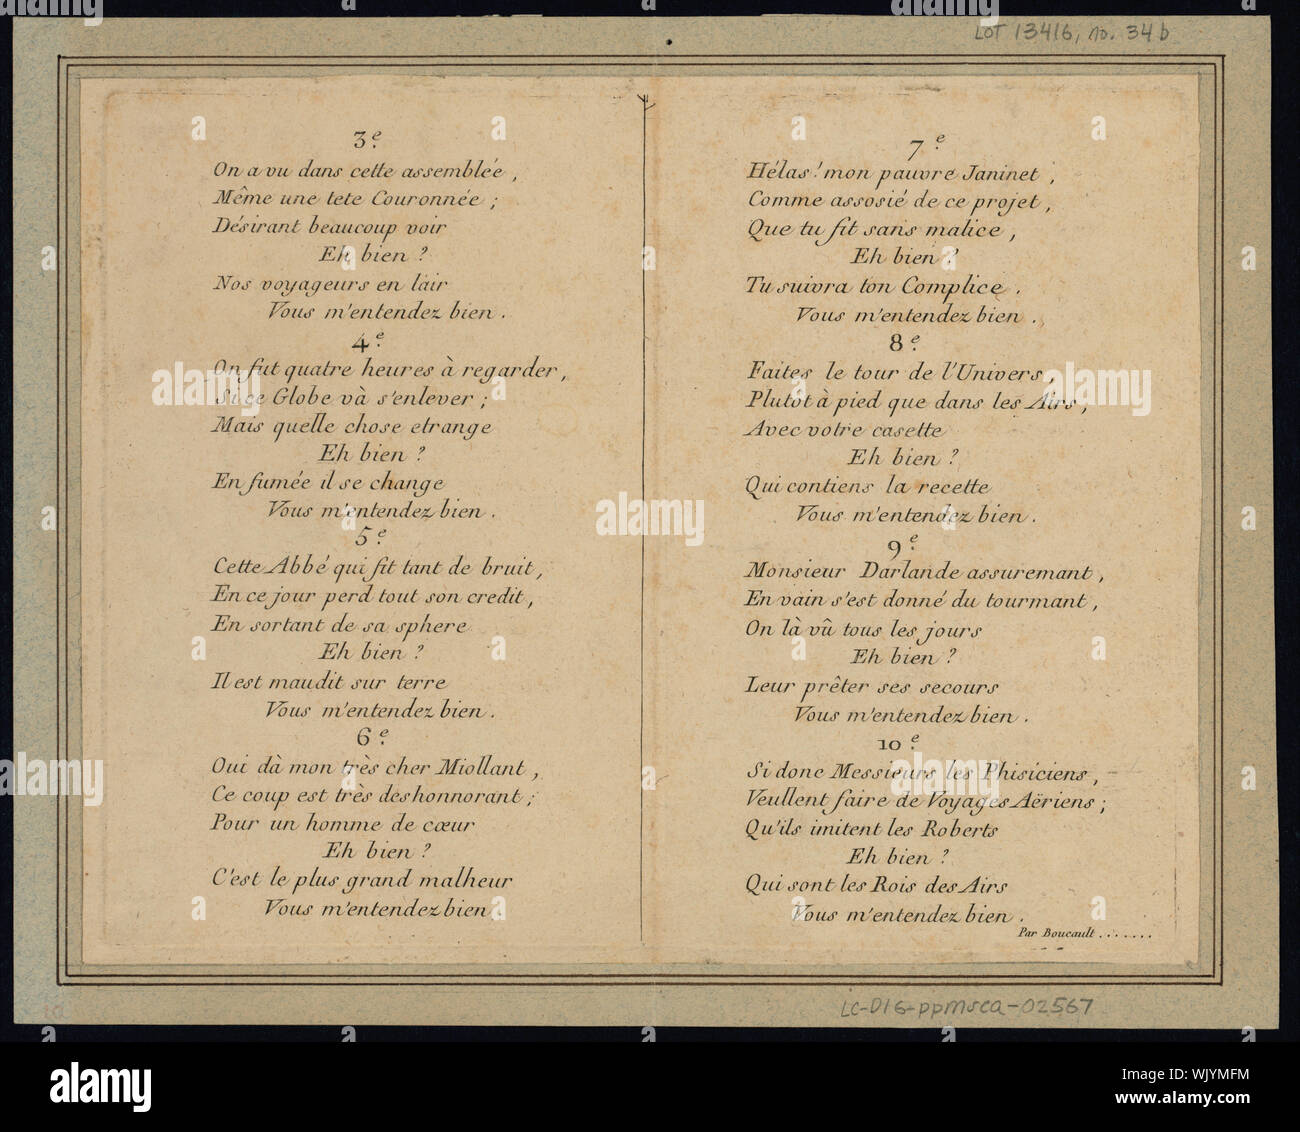 LOT 13416, no. 34 b
3.e
On a vu dans cette assemblée,
Même une tete Couronnée;
Désirant beaucoup voir
Eh bien?
Nos voyageurs en l'air
Vous m'entendez bien.
4.e
On fut quatre heures à regarder,
Si ce Globe và s'enlever;
Mais quelle chose etrange
Eh bien?
En fumée il se change
Vous m'entendez bien.
5.e
Cette Abbé qui fit tant de bruit,
En ce jour perd tout son credit,
En sortant de sa sphere
Eh bien?
Il est maudit sur terre
Vous m'entendez bien.
6.e
Oui dà mon très cher Miollant,
Ce coup est très deshonnorant;
Pour un homme de cœur
Eh bien?
C'est le plus grand malheur
Vous m'entendez bien.
7.e
Hélas! mon pauvre Janinet,
Comme assosié de ce projet,
Que tu fit sans malice,
Eh bien?
Tu suivra ton Complice.
Vous m'entendez bien.
8.e
Faites le tour de l'Univers,
Plutôt à pied que dans les Airs,
Avec votre casette
Eh bien?
Qui contiens la recette
Vous m'entendez bien.
9.e
Monsieur Darlande assuremant,
En vain s'est donné du tourmant,
On là vû tous les jours
Eh bien?
Leur prêter ses secours
Vous m'entendez bien.
10.e
Si donc Messieurs les Phisiciens,
Veullent faire de Voyages Aëriens;
Qu'ils imitent les Roberts
Eh bien?
Qui sont les Rois des Airs
Vous m'entendez bien.
Par Boucault.......
LC-DIG-ppmsca-02567
alamy
a
alamy
Image ID: WJYMFM
www.alamy.com